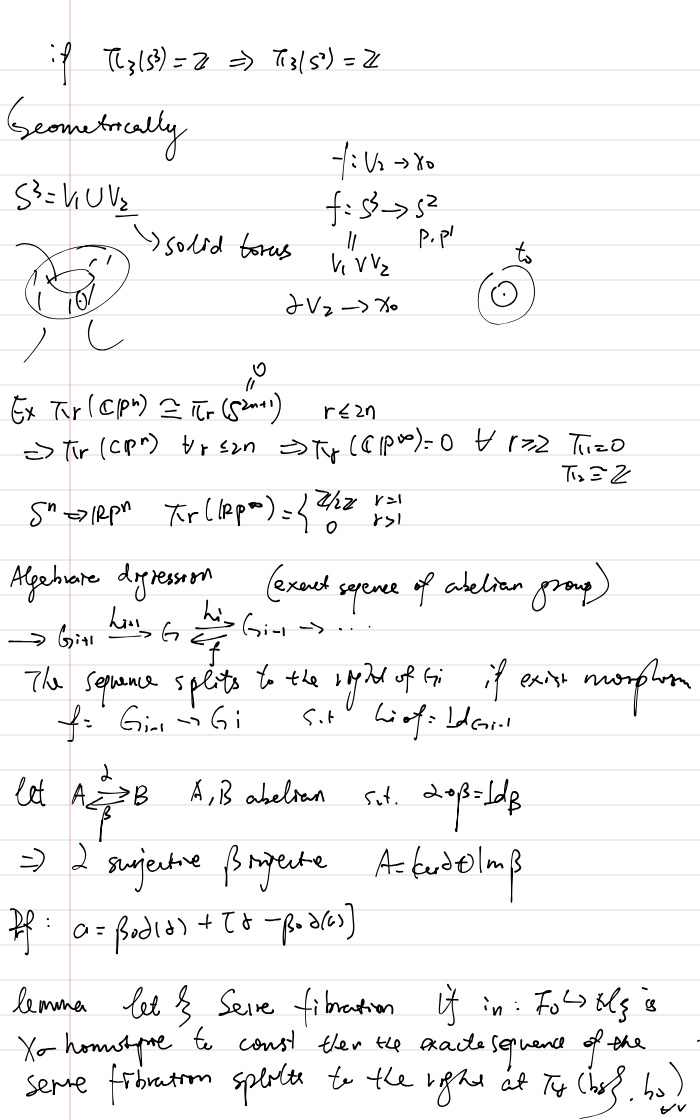 if π₃(S³) = ℤ ⇒ π₃(S²) = ℤ
Geometrically
f: V₂ → x₀
S³ = V₁ ∪ V₂
f: S³ → S²
↳ solid torus
p, p'
V₁ ∨ V₂
∂V₂ → x₀
0
Ex πr(ℂPⁿ) ≅ πr(S²ⁿ⁺¹) r ≤ 2n
⇒ πr(ℂPⁿ) ∀r ≤ 2n ⇒ πr(ℂP^∞) = 0 ∀ r ≥ 2 π₁ = 0
π₂ ≅ ℤ
Sⁿ ⇒ ℝPⁿ πr(ℝP^∞) = { ℤ/2ℤ r=1
0 r>1
Algebraic digression (exact seqence of abelian group)
→ Gi+1 —hi+1→ G ⇄ Gi-1 → ...
hi
f
The sequence splits to the right of Gi if exist morphism
f = Gi-1 → Gi s.t hi∘f = Id Gi-1
let A ⇄ B A, B abelian s.t. α∘β = Id_B
α
β
⇒ α surjective β injective A = ker α ⊕ Im β
Pf : a = β∘α(a) + [a - β∘α(a)]
lemma let ξ Serre fibration If in : F₀ ↪ is
homotope to const then the exacte sequence of the
serre fibration splits to the right at πr(bsξ, b₀)